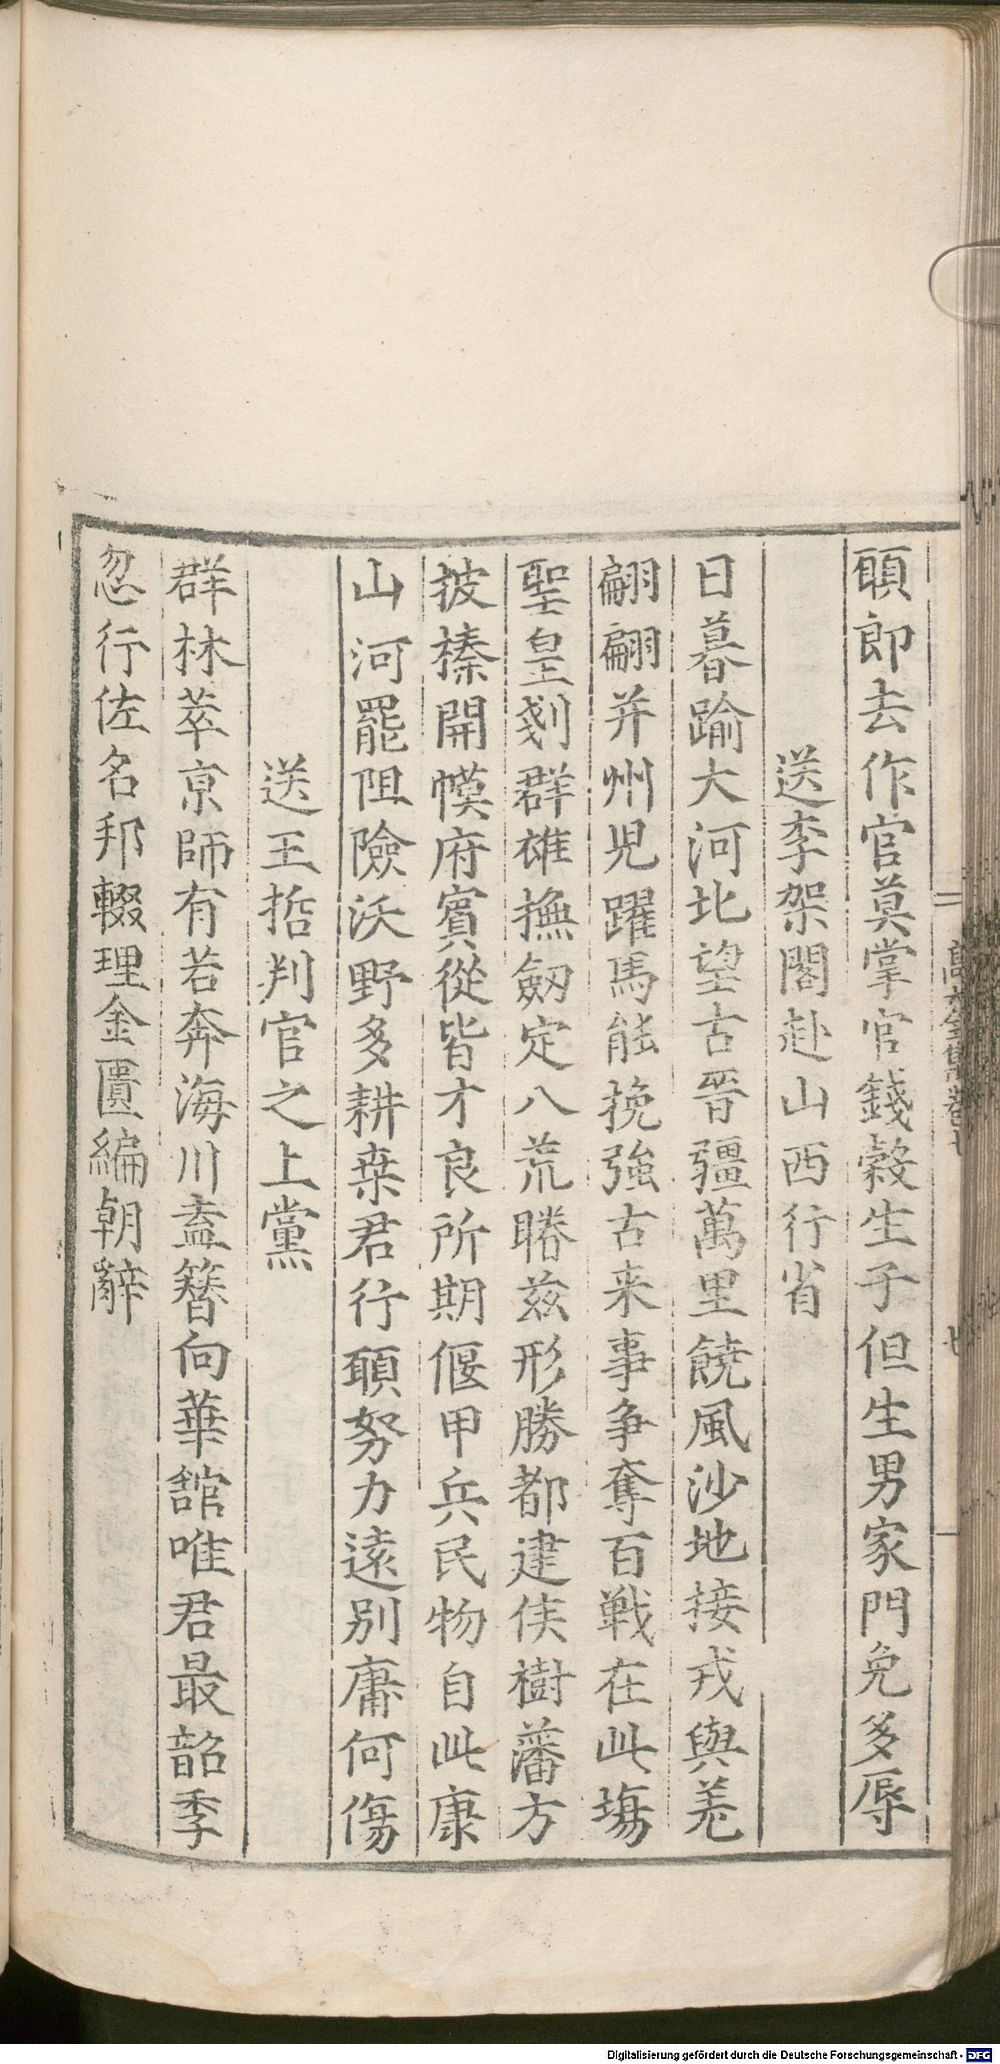 頋郎去作官莫掌官錢榖生子但生男家門免多辱
送李架閣赴山西行省
日暮踰大河北望古晉疆萬里饒風沙地接戎與羌
翩翩并州児躍馬能挽強古来事争奪百戦在此塲
聖皇剗群雄撫劔定八荒睠茲形勝都建侯樹藩方
披榛開幙府賓從皆才良所期偃甲兵民物自此康
山河罷阻險沃野多耕桒君行頋努力逺別庸何傷
送王哲判官之上黨
群材萃京師有若奔海川盍簪向華舘唯君最韶秊
忽行佐名邦輟理金匱編朝辭
Digitalisierung gefördert durch die Deutsche Forschungsgemeinschaft - DFG